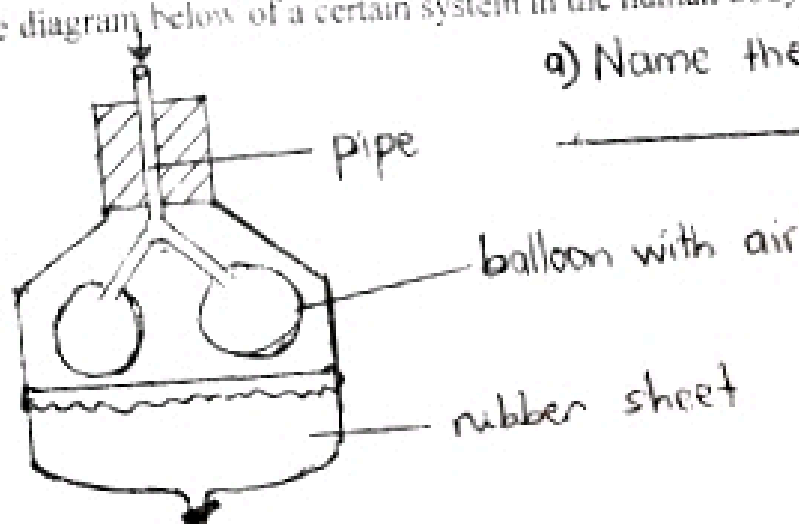 diagram below of a certain system in the human
a) Name the
pipe
balloon with air
rubber sheet